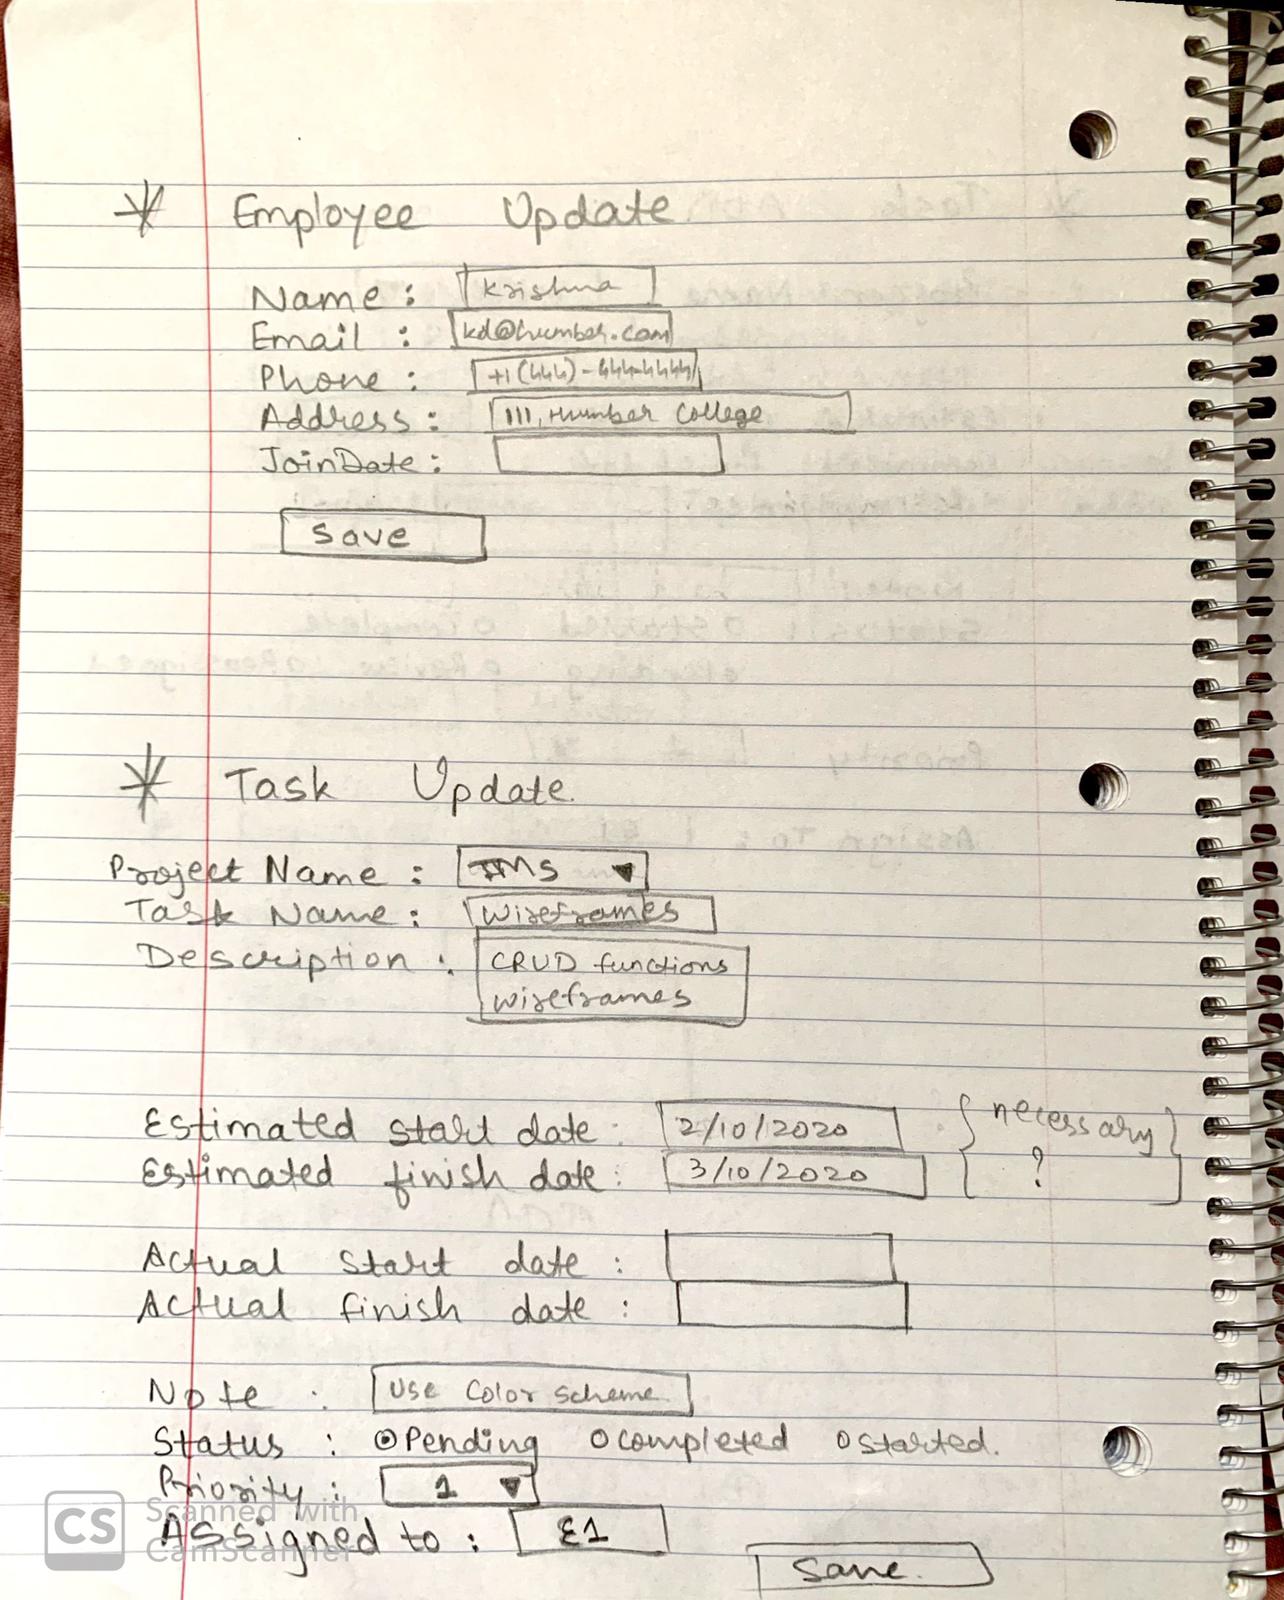 * Employee Update
Name : Krishna
Email : kd@humber.com
Phone : +1(444)-444-4444
Address : 111, Humber College
JoinDate :
Save
* Task Update.
Project Name : TMS ▼
Task Name : Wireframes
Description : CRUD functions
wireframes
Estimated start date : 2/10/2020 { necessary
Estimated finish date : 3/10/2020 ? }
Actual start date :
Actual finish date :
Note : Use Color scheme.
Status : ⊙Pending ○completed ○started.
Priority : 1 ▼
Assigned to : E1
Save.
CS Scanned with
CamScanner